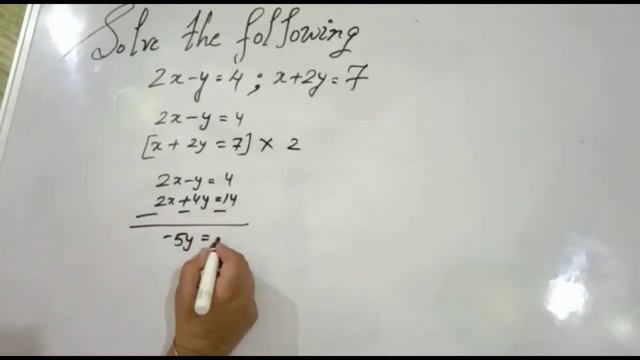 Solve the following
2x-y=4 ; x+2y=7
2x-y=4
[x+2y=7] × 2
2x-y=4
2x+4y=14
- - -
-5y =